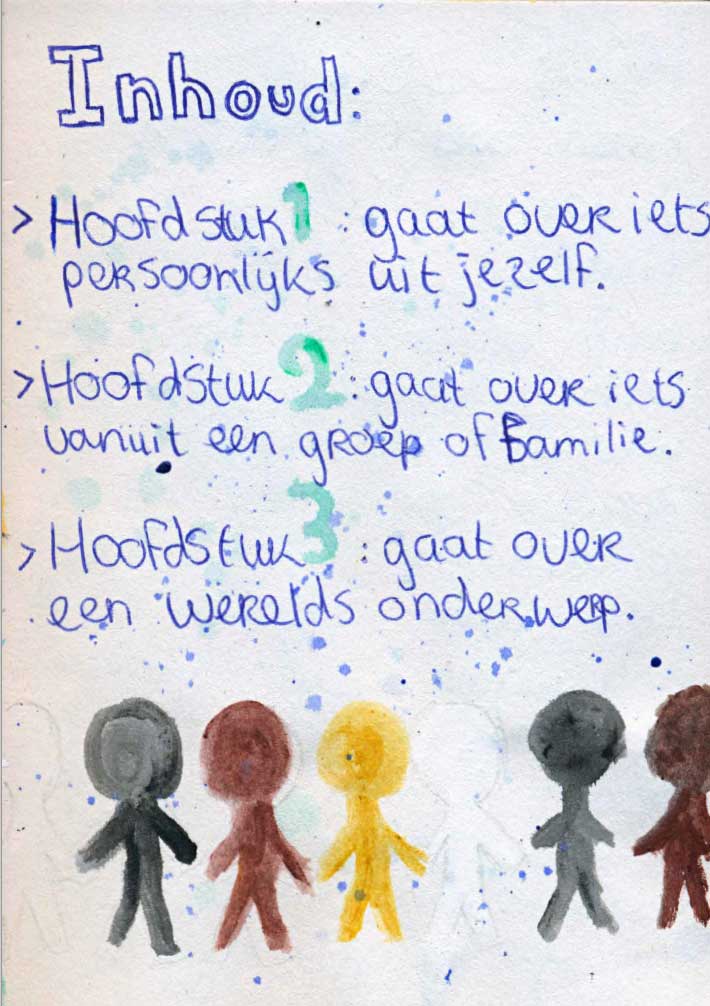 Inhoud:
> Hoofdstuk 1 : gaat over iets
persoonlijks uit jezelf.
> Hoofdstuk 2 : gaat over iets
vanuit een groep of familie.
> Hoofdstuk 3 : gaat over
een werelds onderwerp.